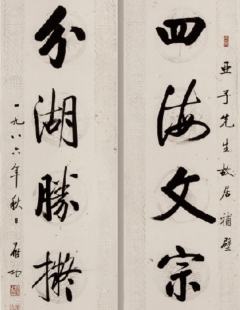 亚子先生故居補壁
四海文宗
分湖勝
一九八六年秋日 启功